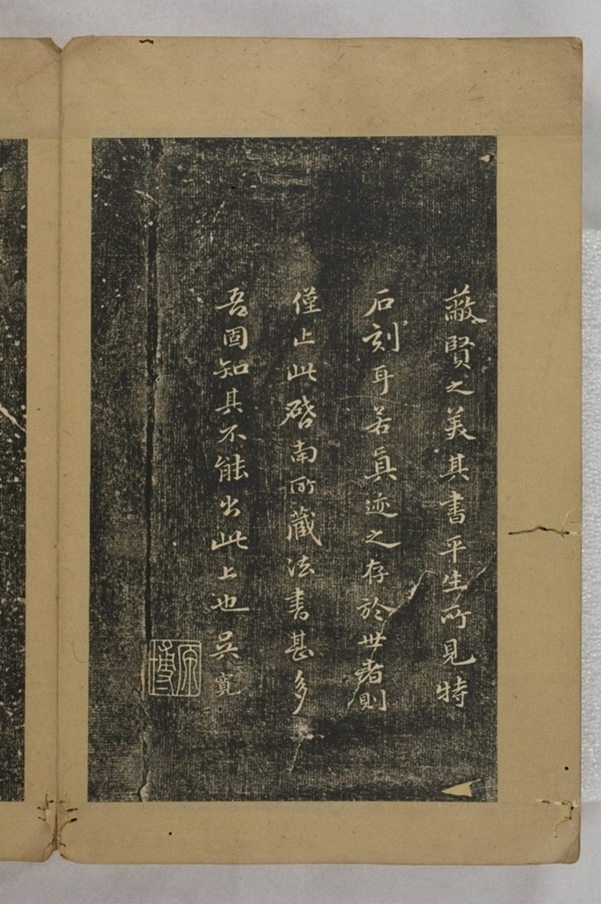 蔽賢之美其書平生所見特
石刻耳若真迹之存於世者則
僅止此啓南所藏法書甚多
吾固知其不能出此上也吳寬
原博